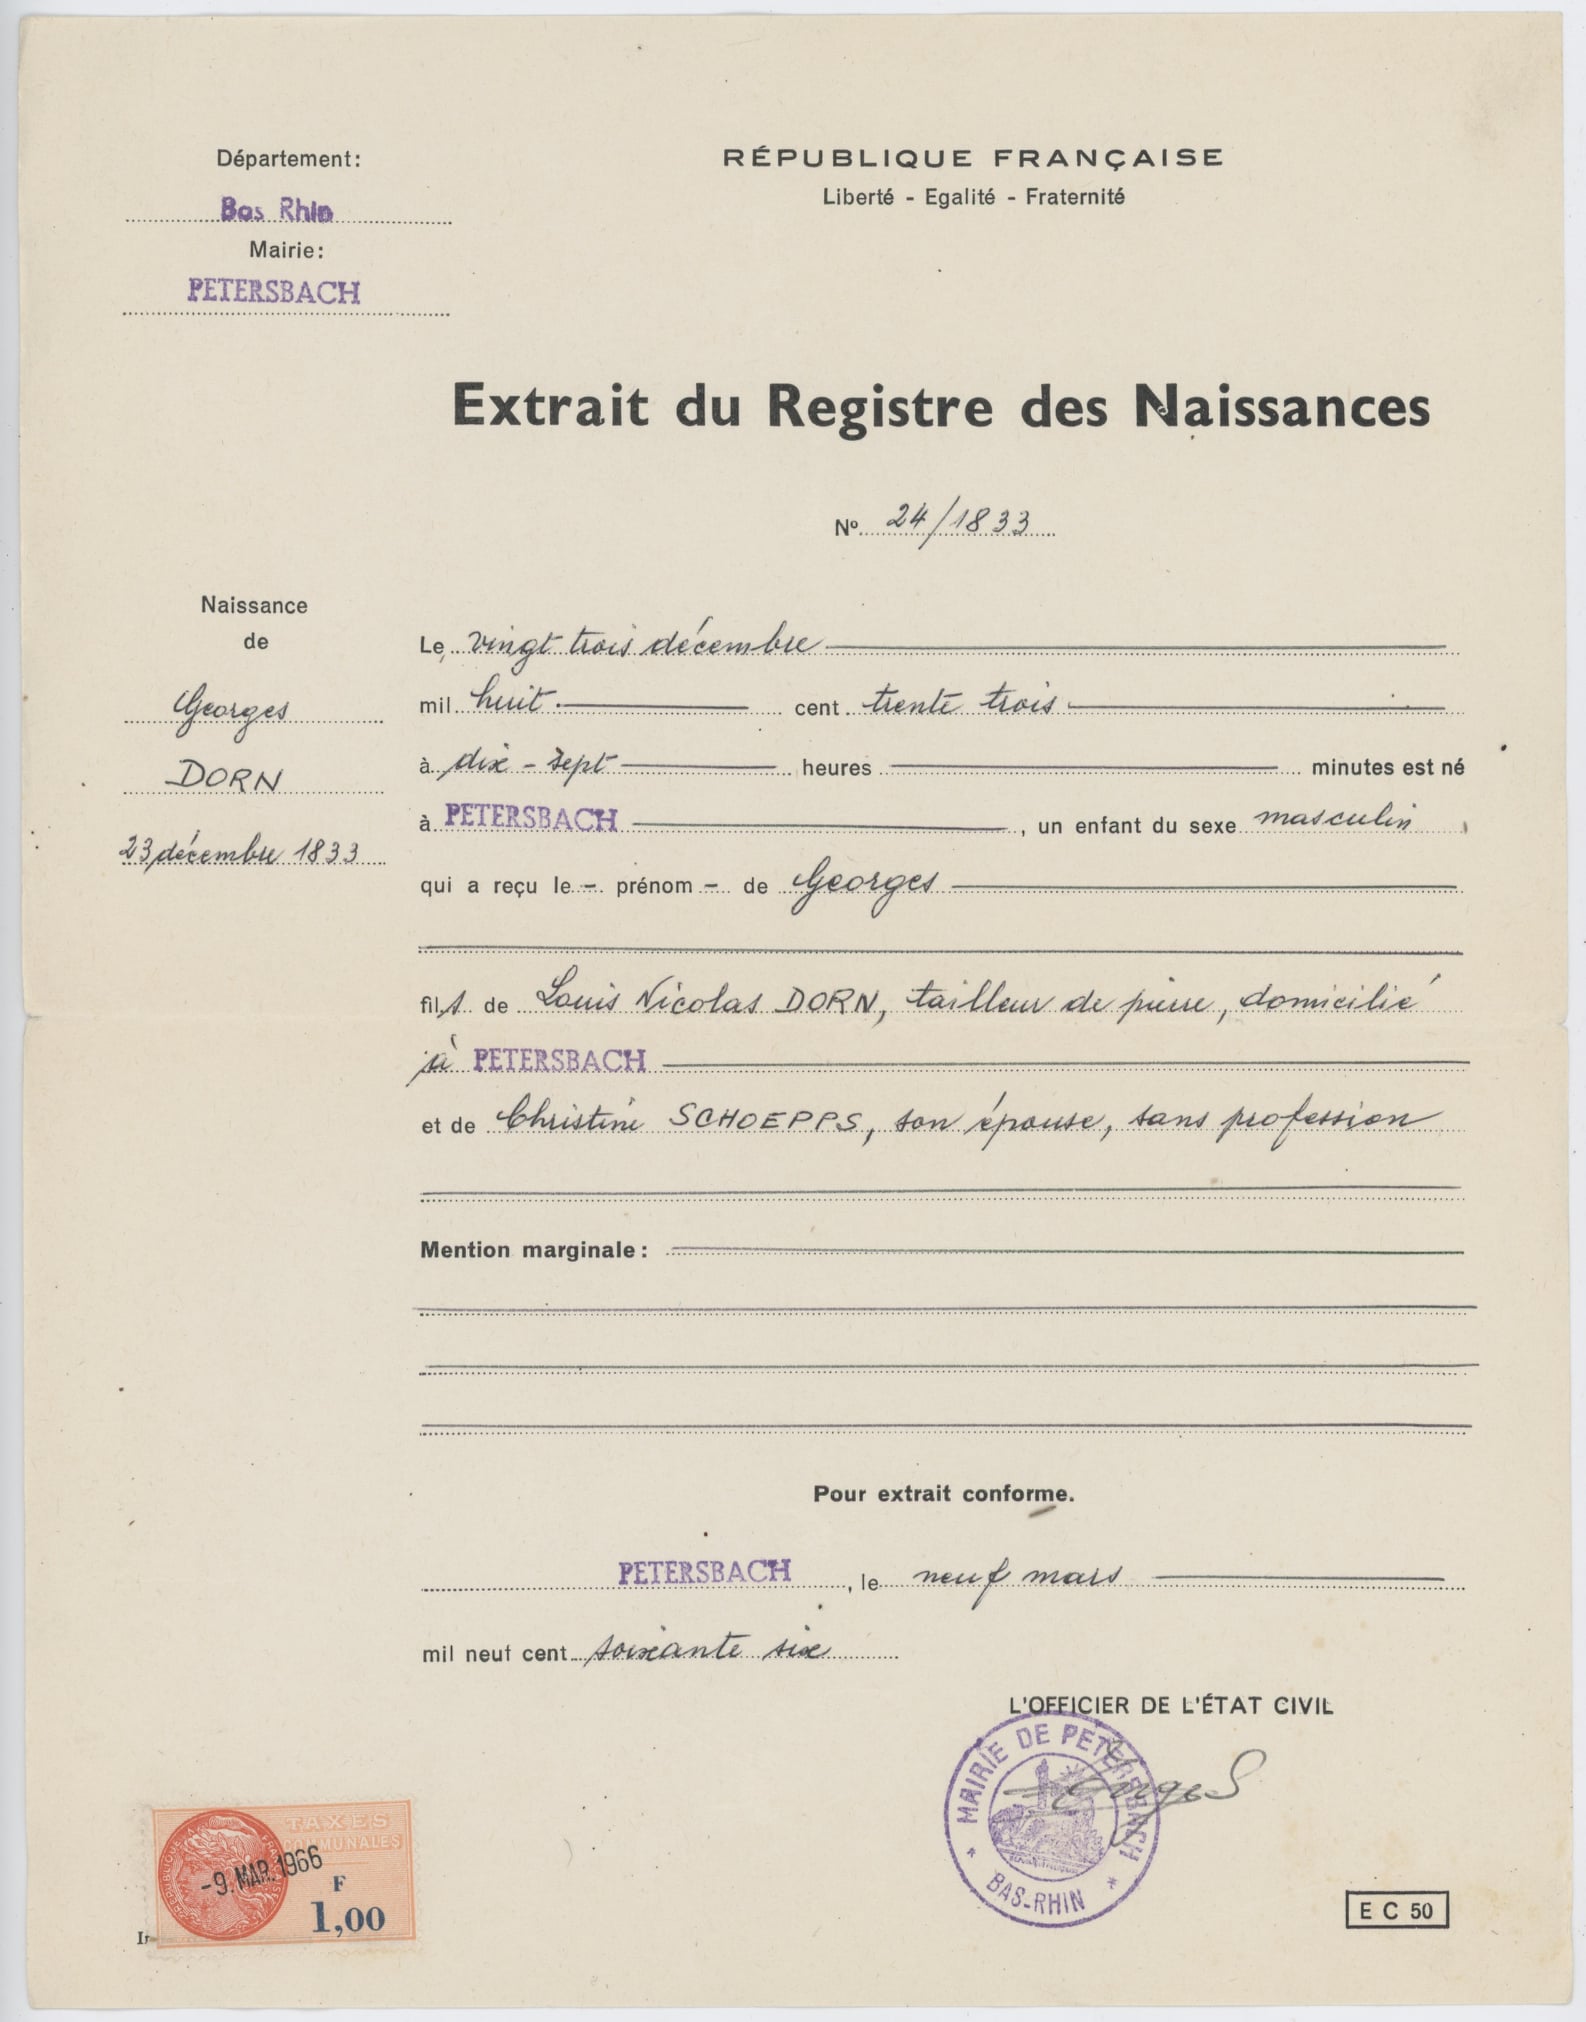 Département:
Bas Rhin
Mairie:
PETERSBACH
RÉPUBLIQUE FRANÇAISE
Liberté - Egalité - Fraternité
Extrait du Registre des Naissances
Nº 24/1833
Naissance
de
Georges
DORN
23 décembre 1833
Le vingt trois décembre
mil huit cent trente trois
à dix-sept heures minutes est né
à PETERSBACH, un enfant du sexe masculin
qui a reçu le - prénom - de Georges
fils de Louis Nicolas DORN, tailleur de pierre, domicilié
à PETERSBACH
et de Christine SCHOEPPS, son épouse, sans profession
Mention marginale:
Pour extrait conforme.
PETERSBACH, le neuf mars
mil neuf cent soixante six
L'OFFICIER DE L'ÉTAT CIVIL
MAIRIE DE PETERSBACH
* BAS-RHIN *
TAXES
COMMUNALES
-9. MAR. 1966
F
1,00
E C 50